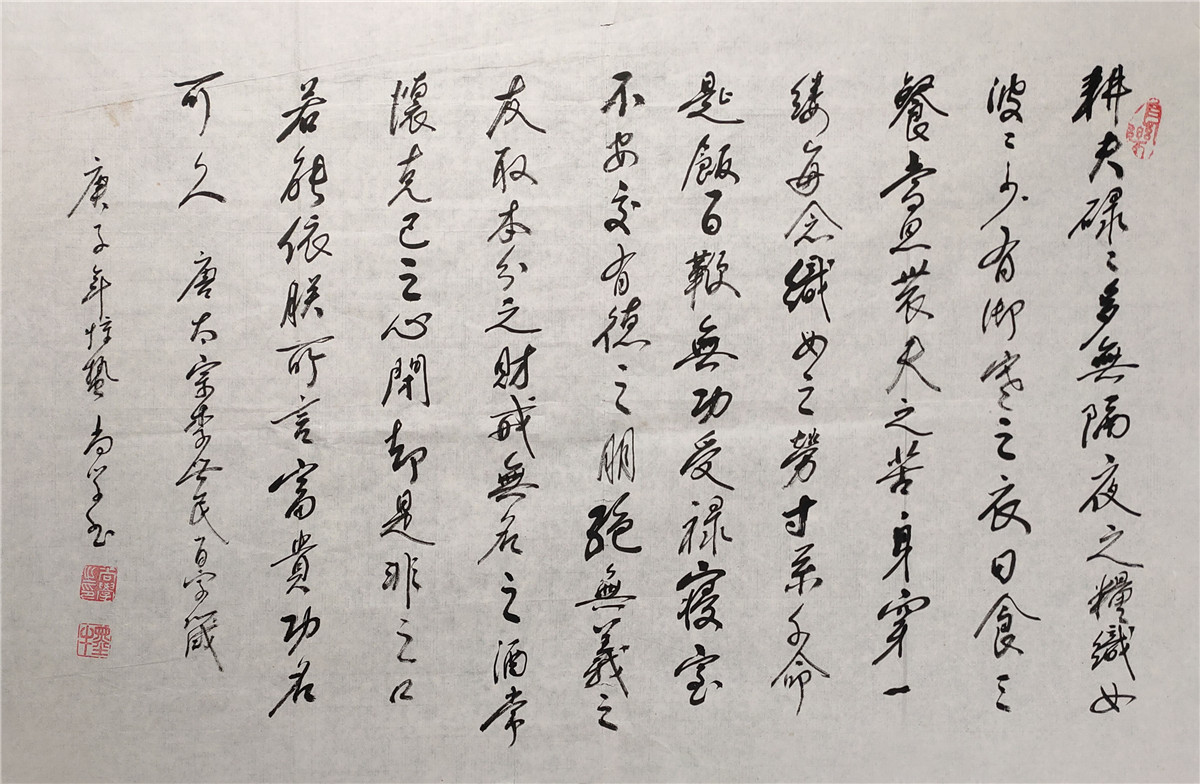 耕夫碌〻多無隔夜之糧織女
波〻少有御寒之衣日食三
餐當思農夫之苦身穿一
縷每念織女之勞寸絲千命
匙飯百鞭無功受祿寢室
不安交有德之朋絕無義之
友取本分之財戒無名之酒常
懷克己之心閉却是非之口
若能依朕所言富貴功名
可久 唐太宗李世民百字箴
庚子年驚蟄尚學書
尚學